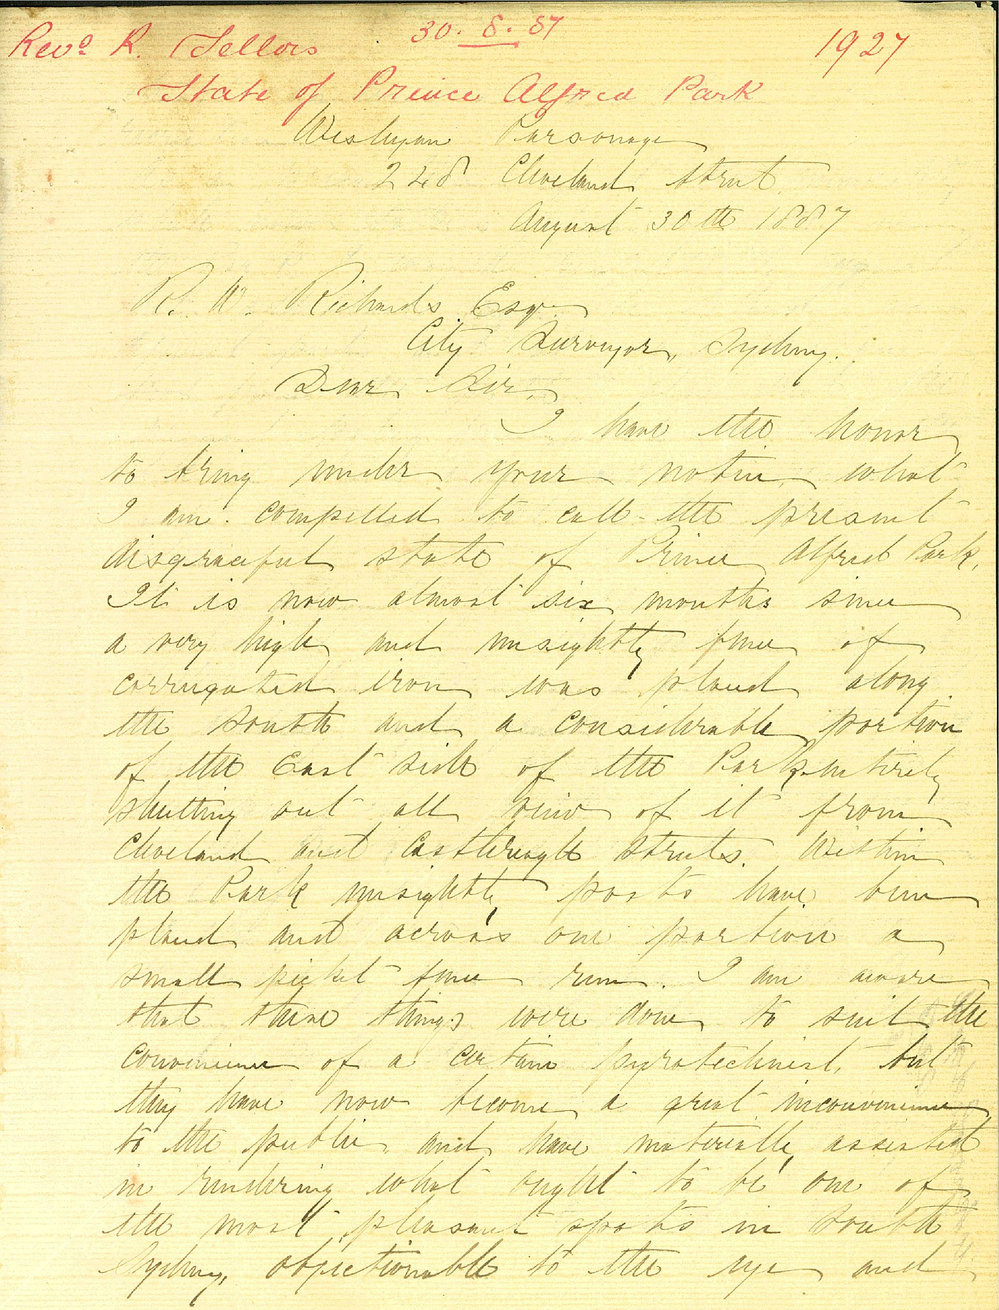 30.8.87
Revd R. Sellors 1927
State of Prince Alfred Park
Wesleyan Parsonage
248 Cleveland Street
August 30th 1887
R. W. Richards Esqr
City Surveyor, Sydney.
Dear Sir,
I have the honor
to bring under your notice what
I am compelled to call the present
disgraceful state of Prince Alfred Park.
It is now almost six months since
a very high and unsightly fence of
corrugated iron was placed along
the South and a considerable portion
of the East side of the Park, entirely
shutting out all view of it from
Cleveland and Castlereagh Streets. Within
the Park unsightly posts have been
placed and across one portion a
small picket fence run. I am aware
that these things were done to suit the
convenience of a certain pyrotechnist, but
they have now become a great inconvenience
to the public and have materially assisted
in rendering what ought to be one of
the most pleasant spots in South
Sydney, objectionable to the eye and